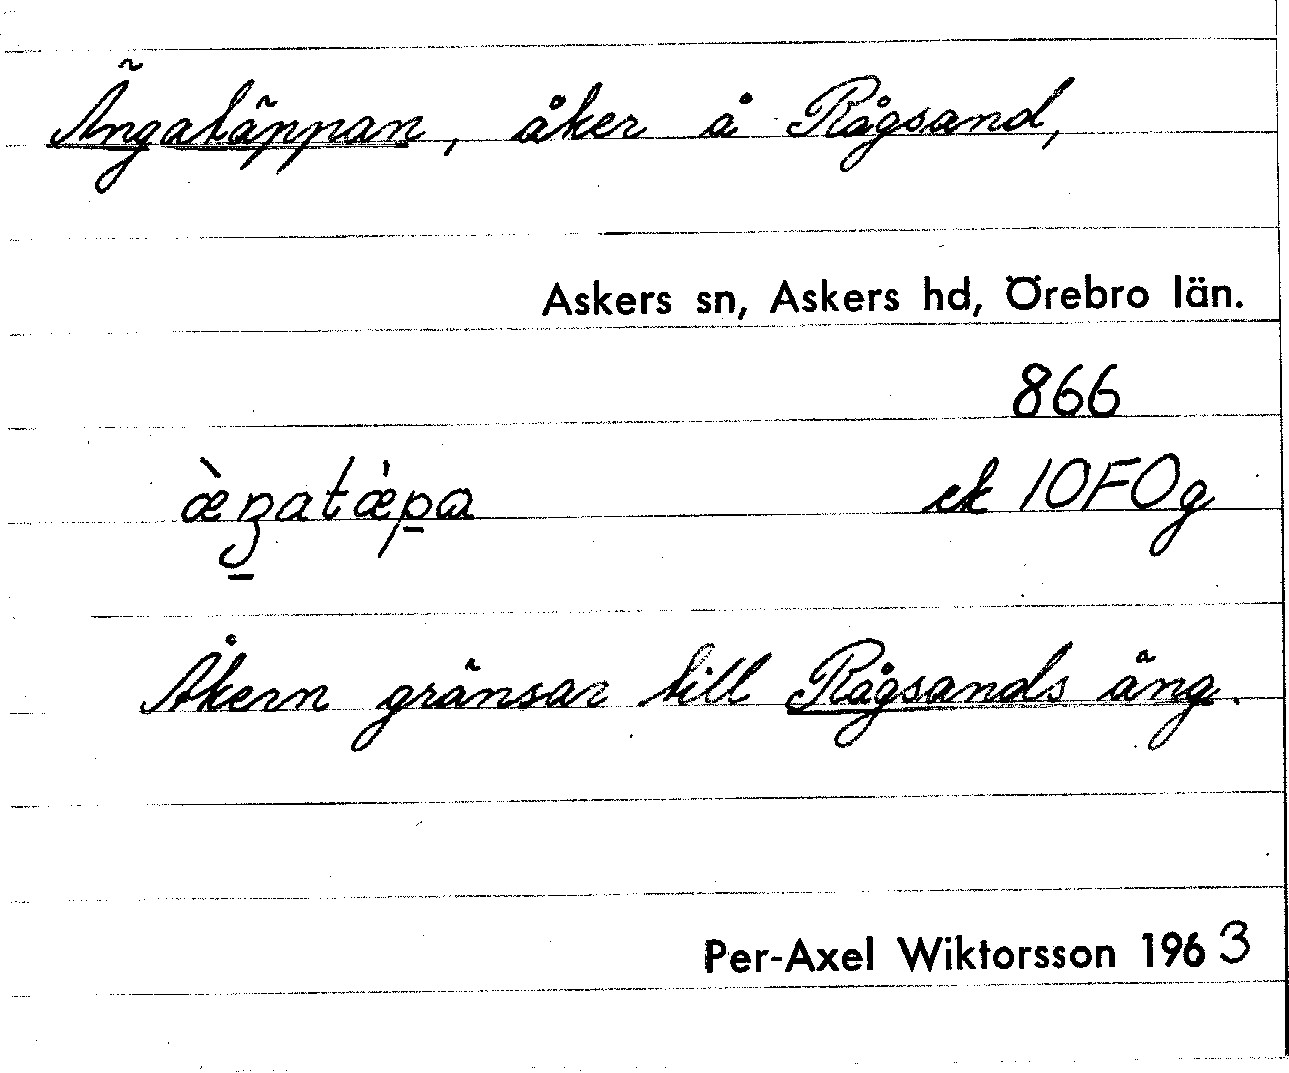 Ängatäppan, åker å Rågsand,
Askers sn, Askers hd, Örebro län.
866
æ̀ŋatæ̀pa ek 10F0g
Åkern gränsar till Rågsands äng.
Per-Axel Wiktorsson 1963